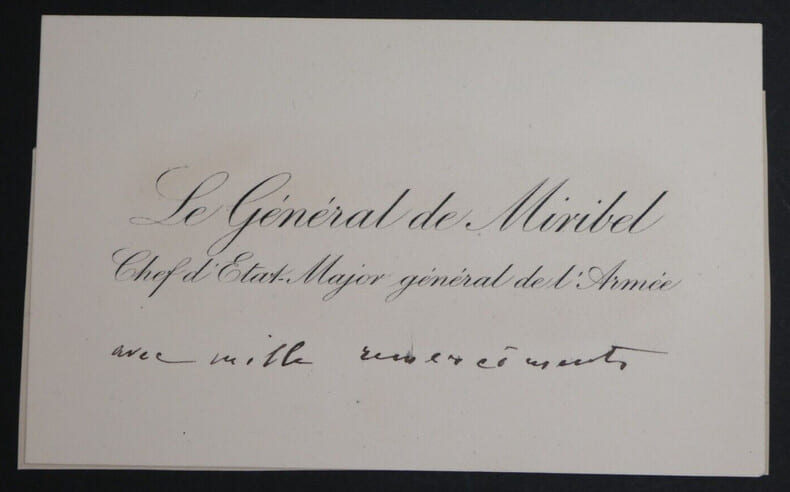 Le Général de Miribel
Chef d'Etat-Major général de l'Armée
avec mille remercîments